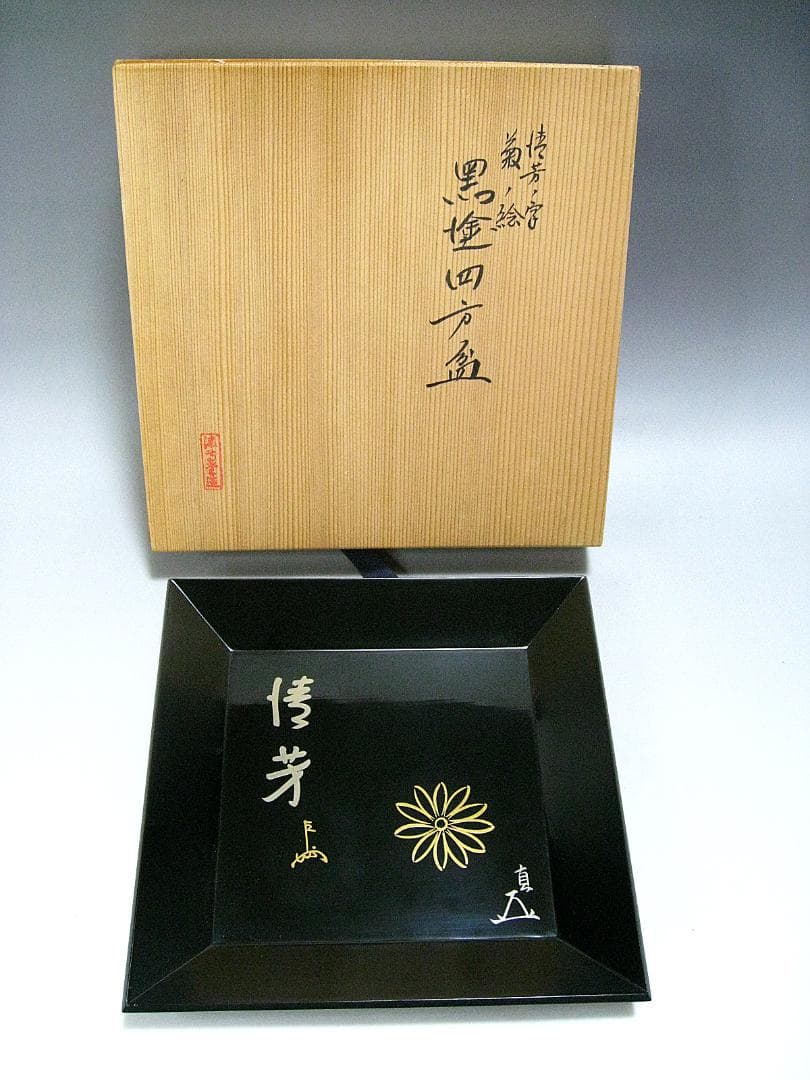 情芳ノ字
菊ノ絵
黒塗四方盆
情
芳